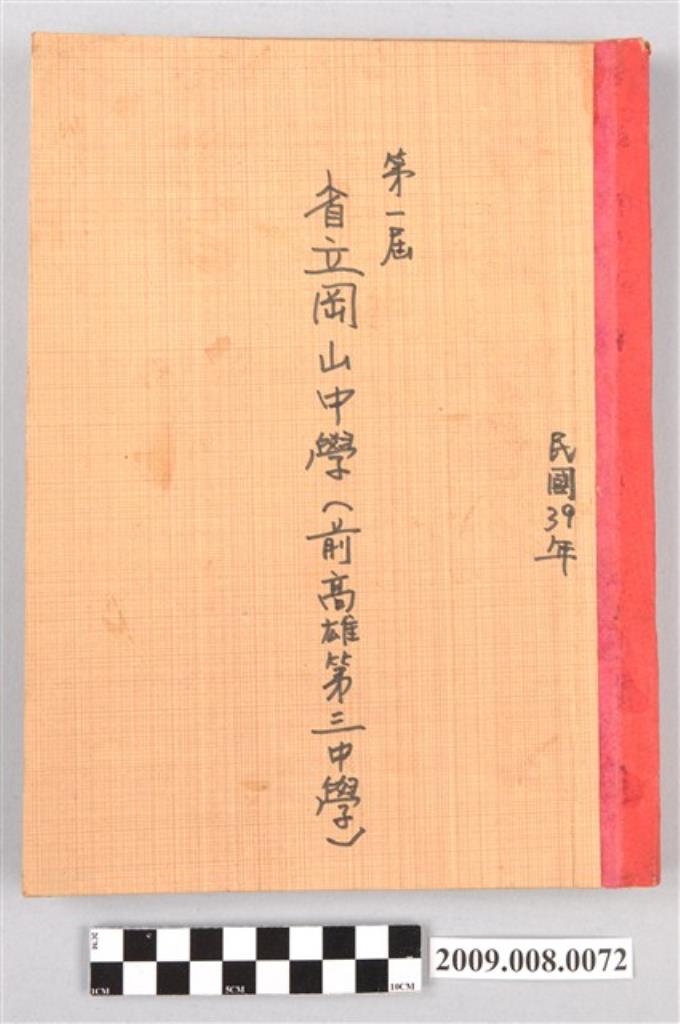 民國39年
第一屆
省立岡山中學(前高雄第三中學)
1CM
5CM
10CM
2009.008.0072